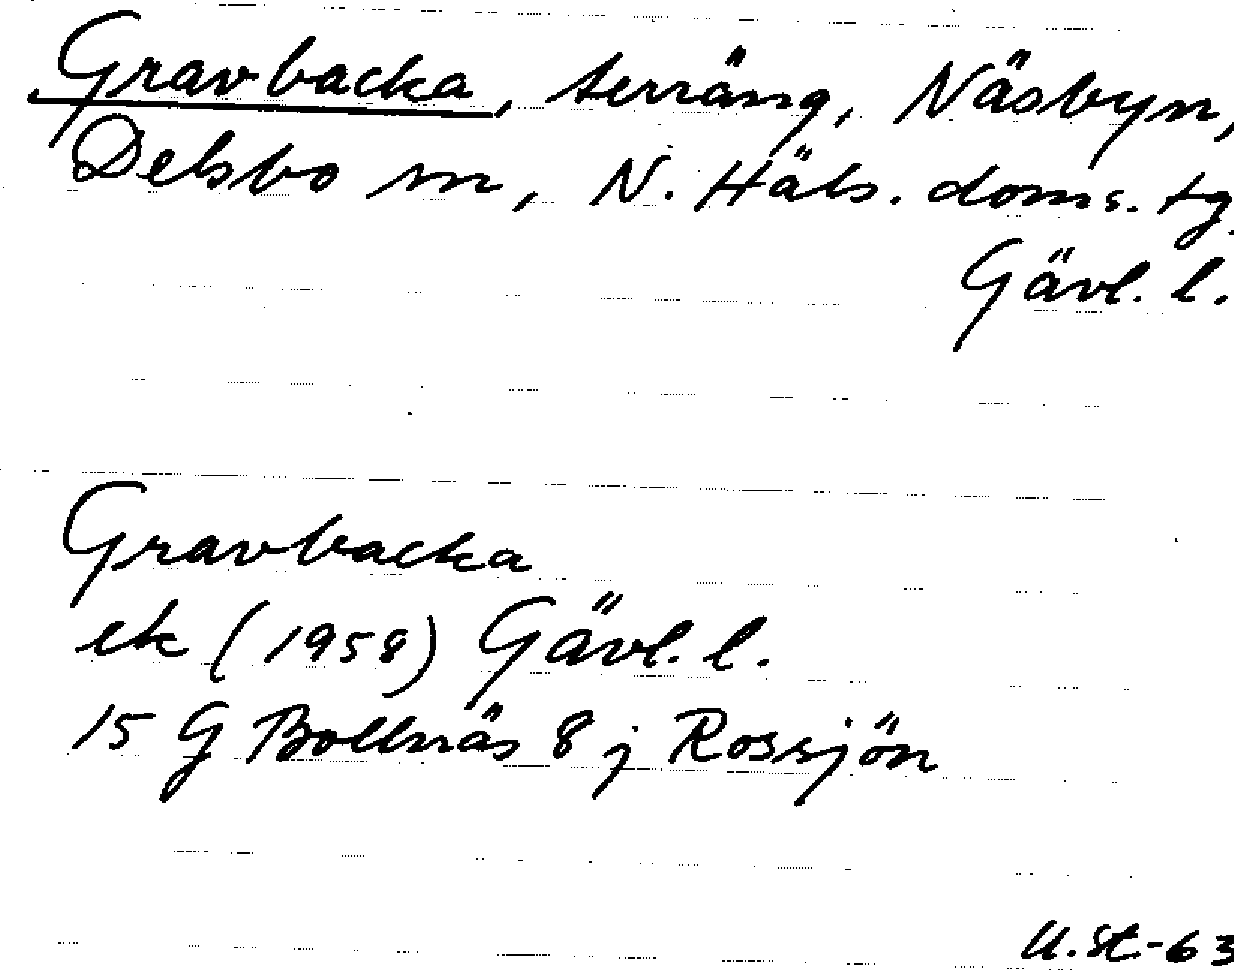 Gravbacka, terräng, Näsbyn,
Delsbo sn, N. Häls. doms. tg.
Gävl. l.
Gravbacka
ek (1958) Gävl. l.
15 G Bollnäs 8 j Rossjön
U.St-63